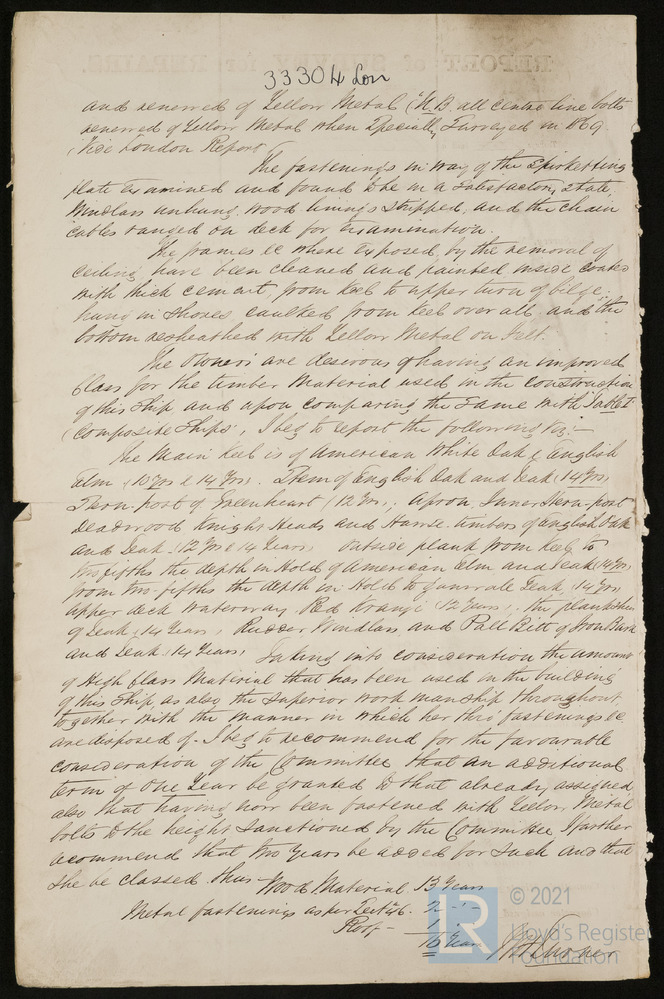 33304 Lon
and renewed of Yellow Metal (N.B. all centre line bolts
renewed of Yellow Metal when Specially Surveyed in 1869.
(Vide London Report)
The fastenings in way of the Spirketting
plate examined and found to be in a satisfactory state,
Windlass unhung, wood linings stripped, and the chain
cables ranged on deck for examination.
The frames &c where exposed, by the removal of
ceiling, have been cleaned and painted inside coated
with thick cement, from keel to upper turn of bilge,
hung in Shores, caulked from keel over all and the
bottom resheathed with Yellow Metal on Felt.
The Owners are desirous of having an improved
Class for the timber Material used in the construction
of this Ship and upon comparing the same with Table I
(Composite Ships), I beg to report the following viz:-
The Main keel is of American White Oak & English
Elm (10 Yrs & 14 Yrs). Stem of English Oak and Teak (14 Yrs)
Stern-post of Greenheart (12 Yrs), Apron, Inner Stern-post
Deadwood Knight Heads and Hawse timbers of English Oak
and Teak (12 Yrs & 14 Years) Outside plank from keel to
two fifths the depth in Hold of American Elm and Teak (14 Yrs)
from two fifths the depth in Hold to gunwale Teak (14 Yrs)
upper deck waterway Red (12 Years), the planksheer
of Teak (14 Years), Rudder, Windlass, and Pall Bitt of Iron Bark
and Teak (14 Years) Taking into consideration the amount
of High Class Material that has been used in the building
of this Ship, as also the superior workmanship throughout,
together with the manner in which her fastenings &c
are disposed of. I beg to recommend for the favourable
consideration of the Committee that an additional
term of One Year be granted to that already assigned
also that having now been fastened with Yellow Metal
bolts to the height sanctioned by the Committee I further
recommend that two years be added for such and that
she be classed thus - Wood Material 13 Years
Metal fastenings as per Sect 46. 2 - " -
Roof - 1
16 Years
LR
© 2021
Lloyd's Register
Foundation